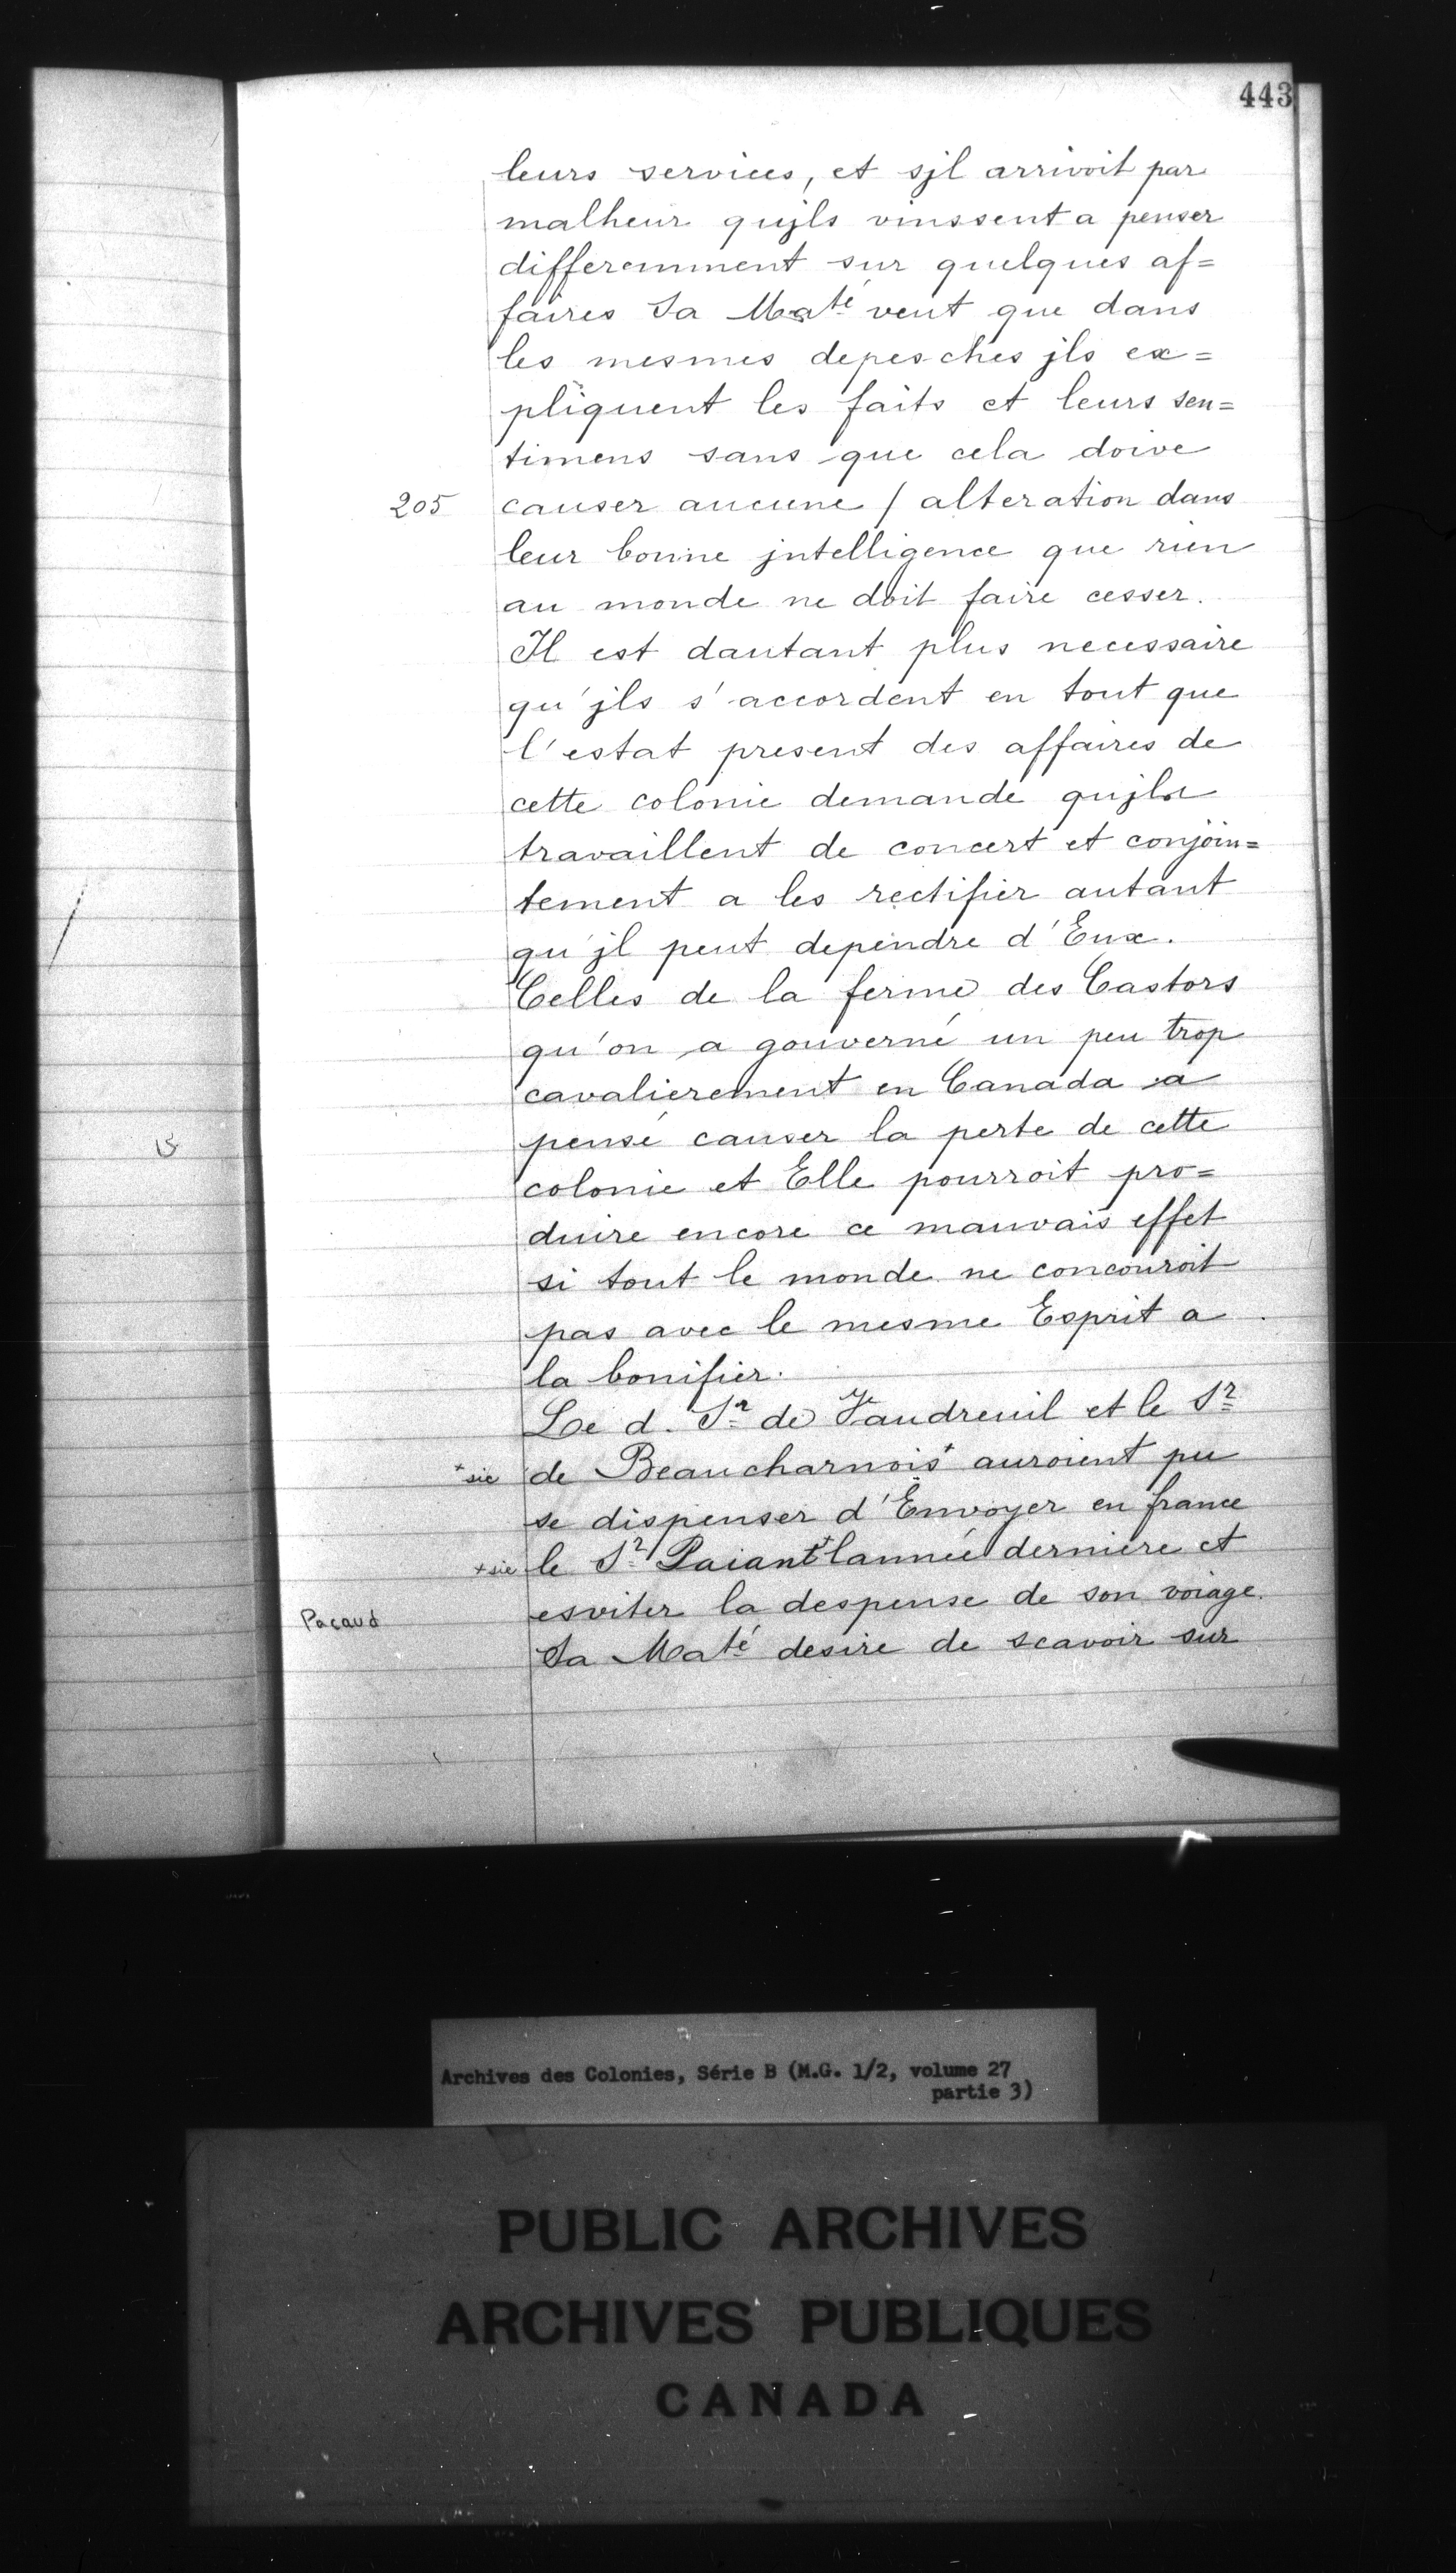 443
leurs services, et sjl arrivoit par
malheur qujls vinssent a penser
differemment sur quelques af=
faires Sa Maté veut que dans
les mesmes depesches jls ex=
pliquent les faits et leurs sen=
timens sans que cela doive
205 causer aucune / alteration dans
leur bonne jntelligence que rien
au monde ne doit faire cesser.
Il est dautant plus necessaire
qu'jls s'accordent en tout que
l'estat present des affaires de
cette colonie demande qujls
travaillent de concert et conjoin=
tement a les rectifier autant
qu'jl peut dependre d'Eux.
Celles de la ferme des Castors
qu'on a gouverné un peu trop
cavalierement en Canada a
pensé causer la perte de cette
colonie et Elle pourroit pro=
duire encore ce mauvais effet
si tout le monde ne concouroit
pas avec le mesme Esprit a
la bonifier.
Le d. Sr de Vaudreuil et le Sr
+sic de Beaucharnois+ auroient pu
se dispenser d'Envoyer en france
+sic le Sr Paiant+ lannée derniere et
esviter la despense de son voiage.
Pacaud
Sa Maté desire de scavoir sur
Archives des Colonies, Série B (M.G. 1/2, volume 27
partie 3)
PUBLIC ARCHIVES
ARCHIVES PUBLIQUES
CANADA